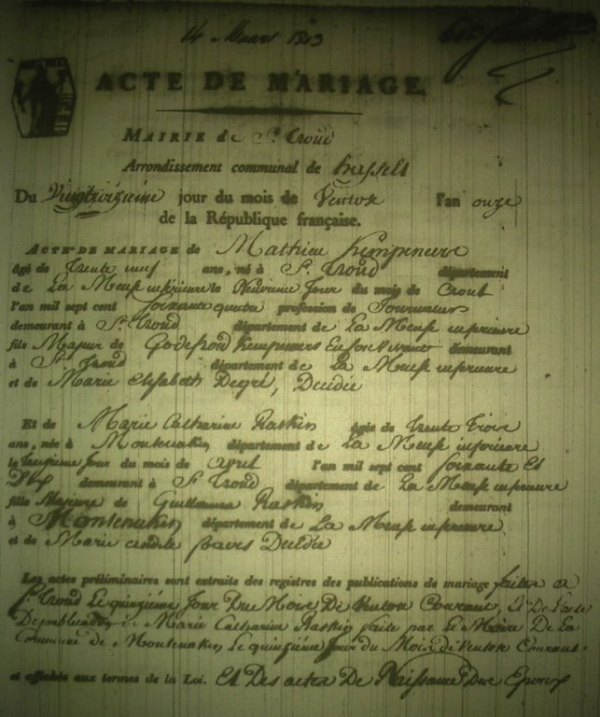 14 Mars 1803
ACTE DE MARIAGE.
MAIRIE de St. Trond
Arrondissement communal de hasselt
Du Vingtroizieme jour du mois de Ventos l'an onze
de la République française.
ACTE DE MARIAGE de Mathieu Kempeneers
âgé de Trente neuf ans, né à St. Trond département
de La Meuse inferieure le Neuvieme Jour du mois de Aout
l'an mil sept cent soixante quatre profession de Journalier
demeurant à St. Trond département de La Meuse inferieure
fils Majeur de Godefroid Kempeneers En son vivant demeurant
à St. Trond département de La Meuse inferieure
et de Marie Elisabeth Degré, Decedée
Et de Marie Catharine Raskin âgée de Trente Trois
ans, née à Montenaken département de La Meuse inferieure
le jour du mois de avril l'an mil sept cent soixante Et
Dix demeurant à St. Trond département de La Meuse inferieure
fille Majeure de Guillaume Raskin demeurant
à Montenaken département de La Meuse inferieure
et de Marie Decedée
Les actes préliminaires sont extraits des registres des publications de mariage faites a
St. Trond Le quinzième Jour Du Mois De Ventos Courant, Et De l'acte
De publication Marie Catharine Raskin faite par le Maire De La
Commune de Montenaken Le quinzième Jour du Mois de Ventos Courant
et affichés aux termes de la Loi. Et Des actes De Naissance Des Epoux